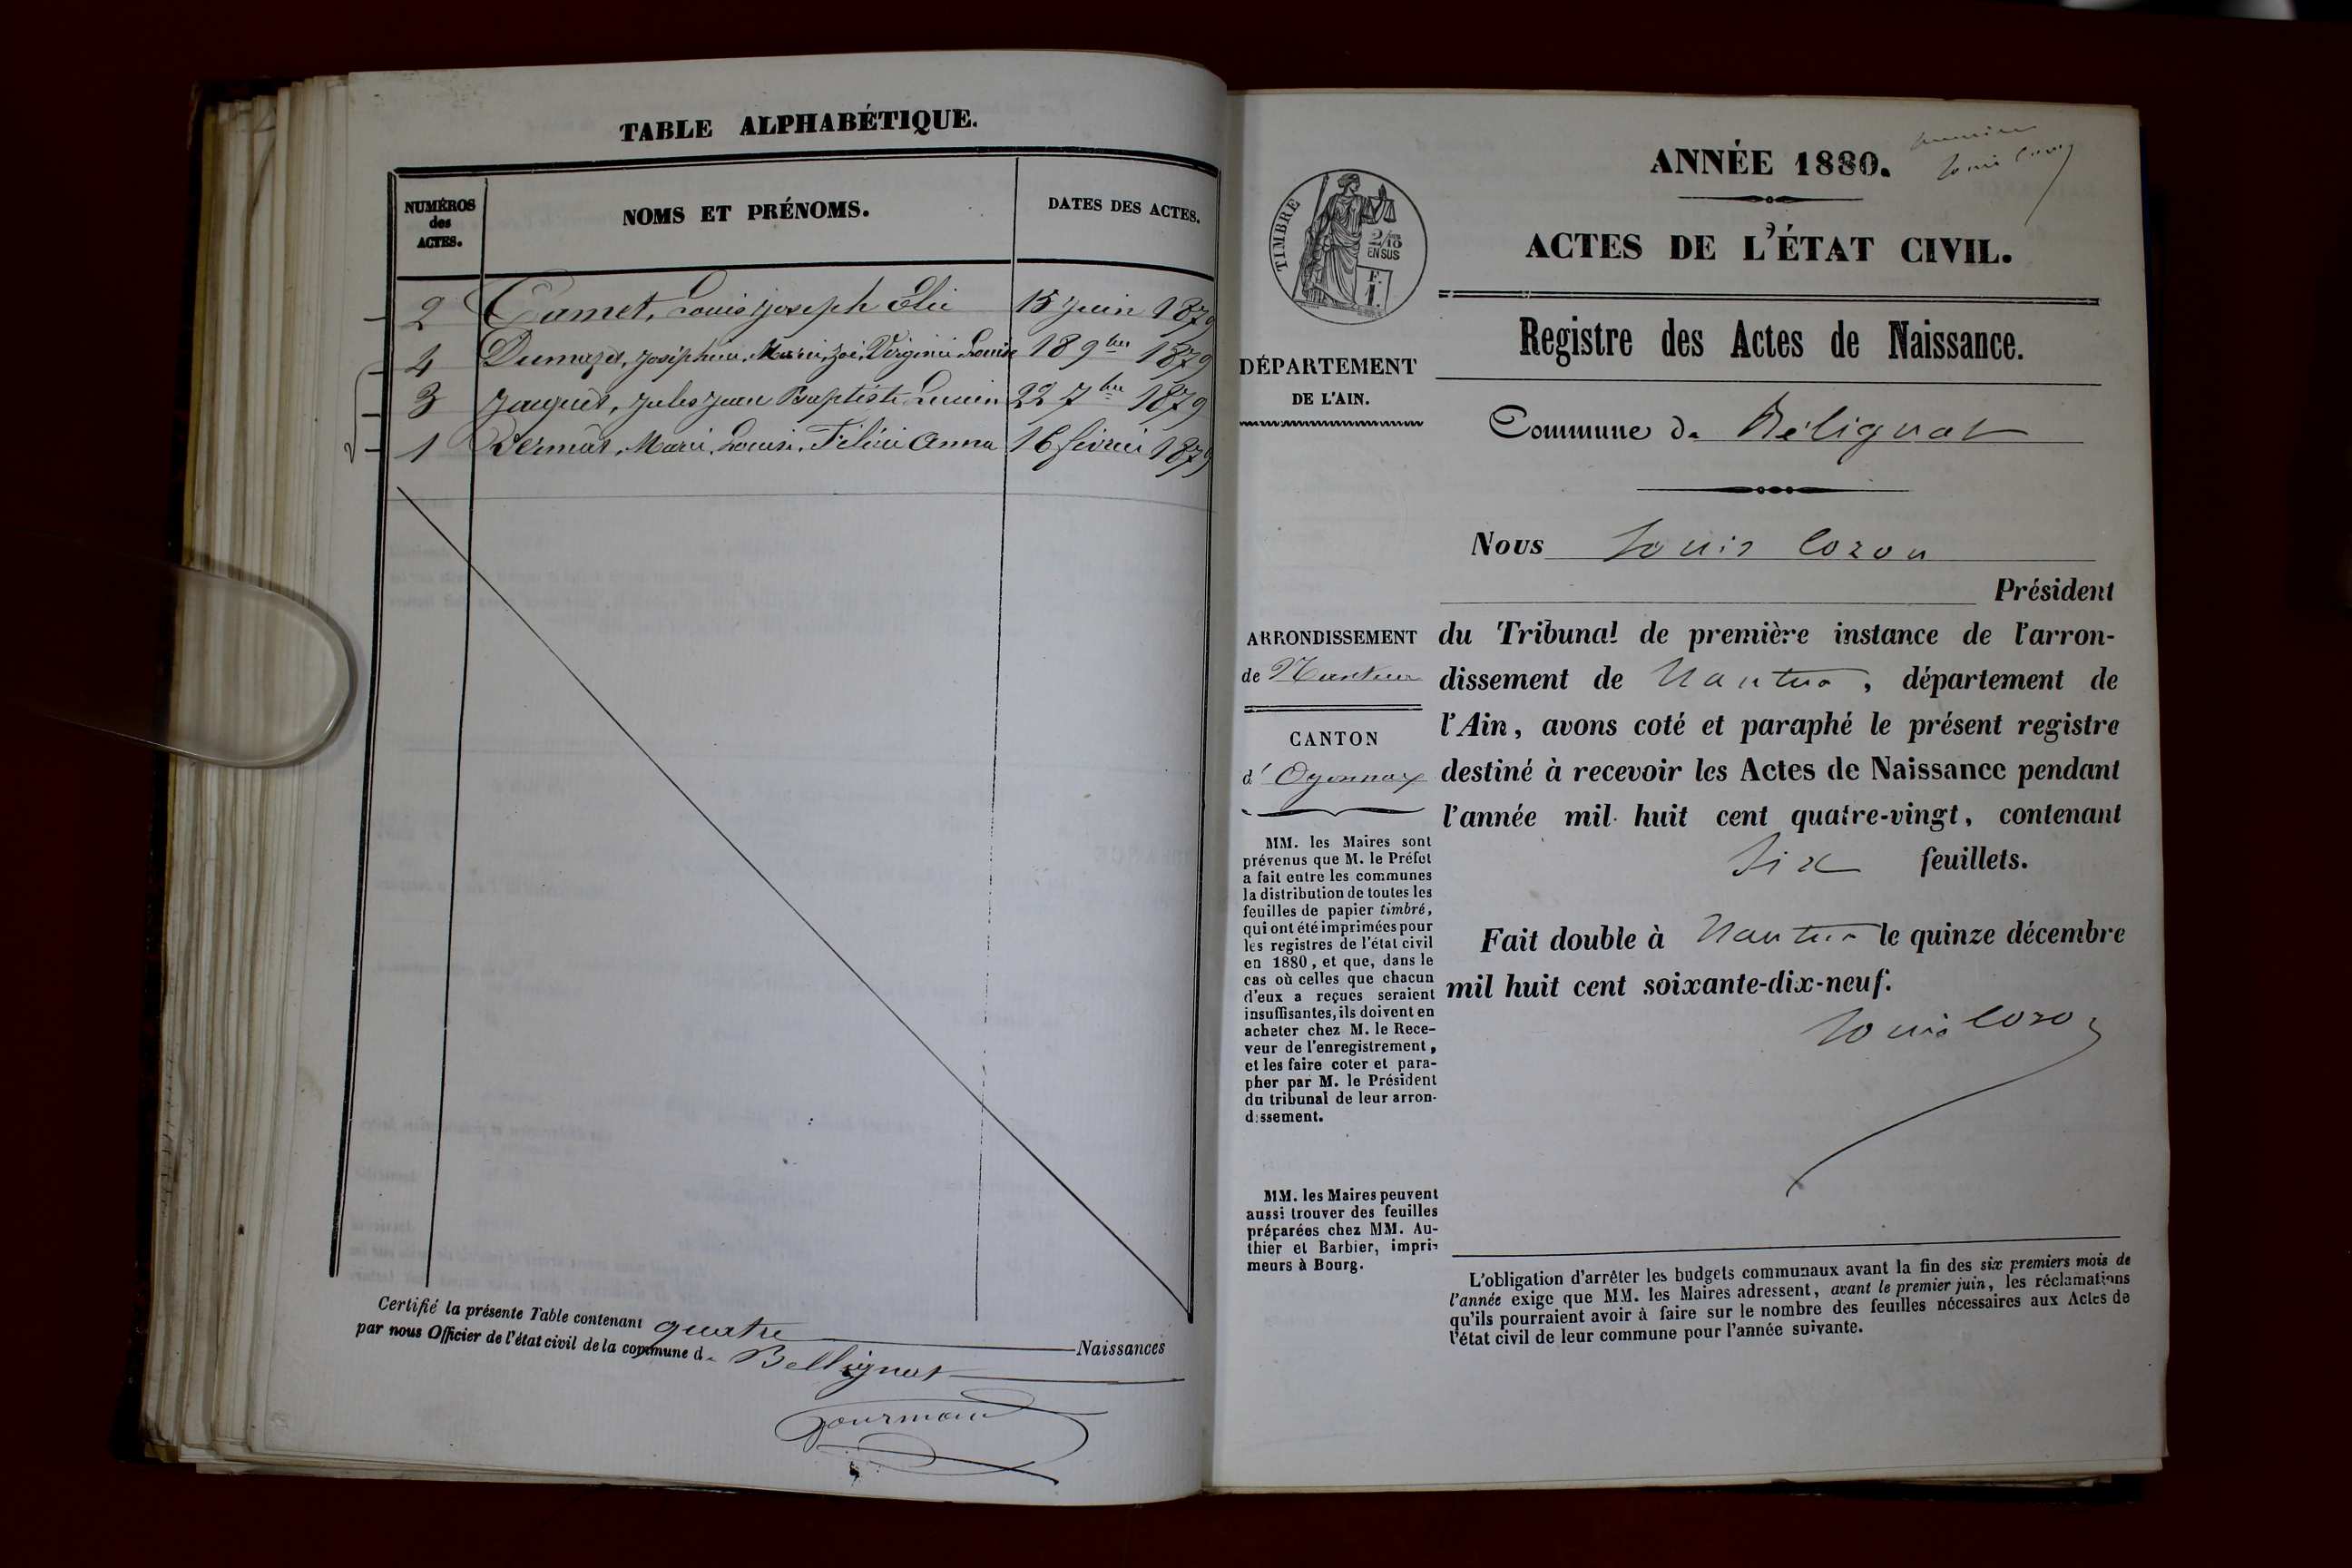 TABLE ALPHABÉTIQUE.
NUMÉROS
des
ACTES.
NOMS ET PRÉNOMS.
DATES DES ACTES.
2 Camet, Louis Joseph Elie 15 Juin 1879
4 Dumazet, Joséphine, Marie, Zoé, Virginie Louise 18 9bre 1879
3 Jauquet, Jules Jean Baptiste Lucien 22 7bre 1879
1 Marie, Louise, Félicie Anna 16 février 1879
Certifié la présente Table contenant quatre Naissances
par nous Officier de l'état civil de la commune de Bellignat
Gourmand
ANNÉE 1880.
première
Louis Cozon
ACTES DE L'ÉTAT CIVIL.
TIMBRE
2/10
EN SUS
F.
1.
Registre des Actes de Naissance.
DÉPARTEMENT
DE L'AIN.
Commune de Bélignat
Nous Louis Cozon
Président
ARRONDISSEMENT
de Nantua
CANTON
d' Oyonnax
du Tribunal de première instance de l'arron-
dissement de Nantua, département de
l'Ain, avons coté et paraphé le présent registre
destiné à recevoir les Actes de Naissance pendant
l'année mil huit cent quatre-vingt, contenant
Six feuillets.
Fait double à Nantua le quinze décembre
mil huit cent soixante-dix-neuf.
Louis Cozon
MM. les Maires sont
prévenus que M. le Préfet
a fait entre les communes
la distribution de toutes les
feuilles de papier timbré,
qui ont été imprimées pour
les registres de l'état civil
en 1880, et que, dans le
cas où celles que chacun
d'eux a reçues seraient
insuffisantes, ils doivent en
acheter chez M. le Rece-
veur de l'enregistrement,
et les faire coter et para-
pher par M. le Président
du tribunal de leur arron-
dissement.
MM. les Maires peuvent
aussi trouver des feuilles
préparées chez MM. Au-
thier et Barbier, impri-
meurs à Bourg.
L'obligation d'arrêter les budgets communaux avant la fin des six premiers mois de
l'année exige que MM. les Maires adressent, avant le premier juin, les réclamations
qu'ils pourraient avoir à faire sur le nombre des feuilles nécessaires aux Actes de
l'état civil de leur commune pour l'année suivante.